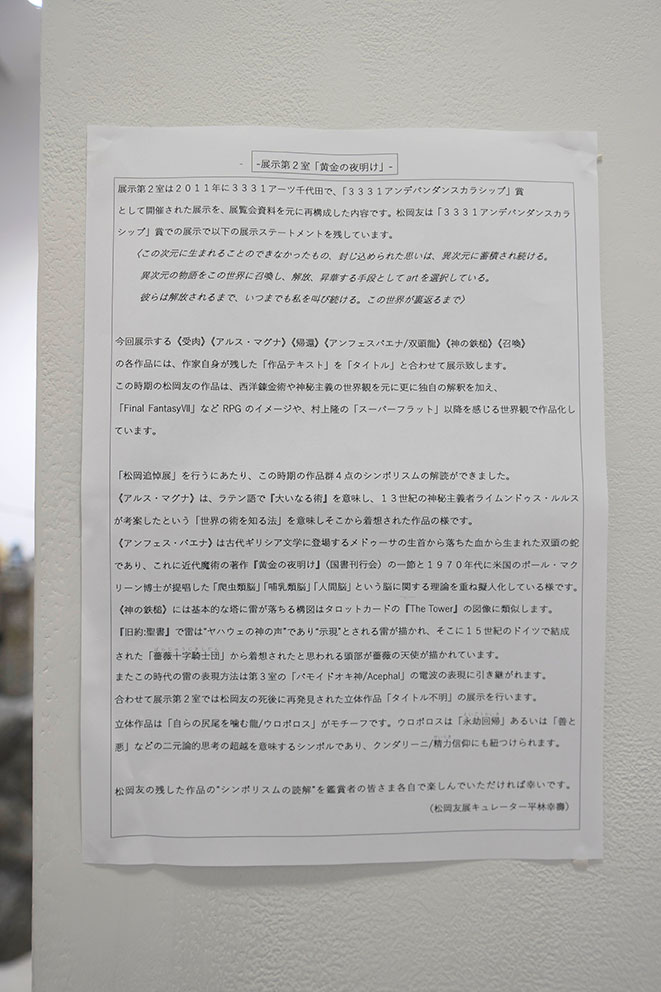 -展示第2室「黄金の夜明け」-
展示第2室は2011年に3331アーツ千代田で、「3331アンデパンダンスカラシップ」賞
として開催された展示を、展覧会資料を元に再構成した内容です。松岡友は「3331アンデパンダンスカラ
シップ」賞での展示で以下の展示ステートメントを残しています。
〈この次元に生まれることのできなかったもの、封じ込められた思いは、異次元に蓄積され続ける。
異次元の物語をこの世界に召喚し、解放、昇華する手段としてartを選択している。
彼らは解放されるまで、いつまでも私を叫び続ける。この世界が裏返るまで〉
今回展示する《受肉》《アルス・マグナ》《帰還》《アンフェスパエナ/双頭龍》《神の鉄槌》《召喚》
の各作品には、作家自身が残した「作品テキスト」を「タイトル」と合わせて展示致します。
この時期の松岡友の作品は、西洋錬金術や神秘主義の世界観を元に更に独自の解釈を加え、
「Final FantasyⅦ」など RPG のイメージや、村上隆の「スーパーフラット」以降を感じる世界観で作品化し
ています。
「松岡追悼展」を行うにあたり、この時期の作品群4点のシンボリスムの解読ができました。
《アルス・マグナ》は、ラテン語で『大いなる術』を意味し、13世紀の神秘主義者ライムンドゥス・ルルス
が考案したという「世界の術を知る法」を意味しそこから着想された作品の様です。
《アンフェス・パエナ》は古代ギリシア文学に登場するメドゥーサの生首から落ちた血から生まれた双頭の蛇
であり、これに近代魔術の著作『黄金の夜明け』(国書刊行会)の一節と1970年代に米国のポール・マク
リーン博士が提唱した「爬虫類脳」「哺乳類脳」「人間脳」という脳に関する理論を重ね擬人化している様です。
《神の鉄槌》には基本的な塔に雷が落ちる構図はタロットカードの『The Tower』の図像に類似します。
『旧約:聖書』で雷は“ヤハウェの神の声”であり“示現”とされる雷が描かれ、そこに15世紀のドイツで結成
された「薔薇十字騎士団」から着想されたと思われる頭部が薔薇の天使が描かれています。
またこの時代の雷の表現方法は第3室の「パモイドオキ神/Acephal」の電波の表現に引き継がれます。
合わせて展示第2室では松岡友の死後に再発見された立体作品「タイトル不明」の展示を行います。
立体作品は「自らの尻尾を噛む龍/ウロボロス」がモチーフです。ウロボロスは「永劫回帰」あるいは「善と
悪」などの二元論的思考の超越を意味するシンボルであり、クンダリーニ/精力信仰にも紐つけられます。
松岡友の残した作品の“シンボリスムの読解”を鑑賞者の皆さま各自で楽しんでいただければ幸いです。
(松岡友展キュレーター平林幸壽)